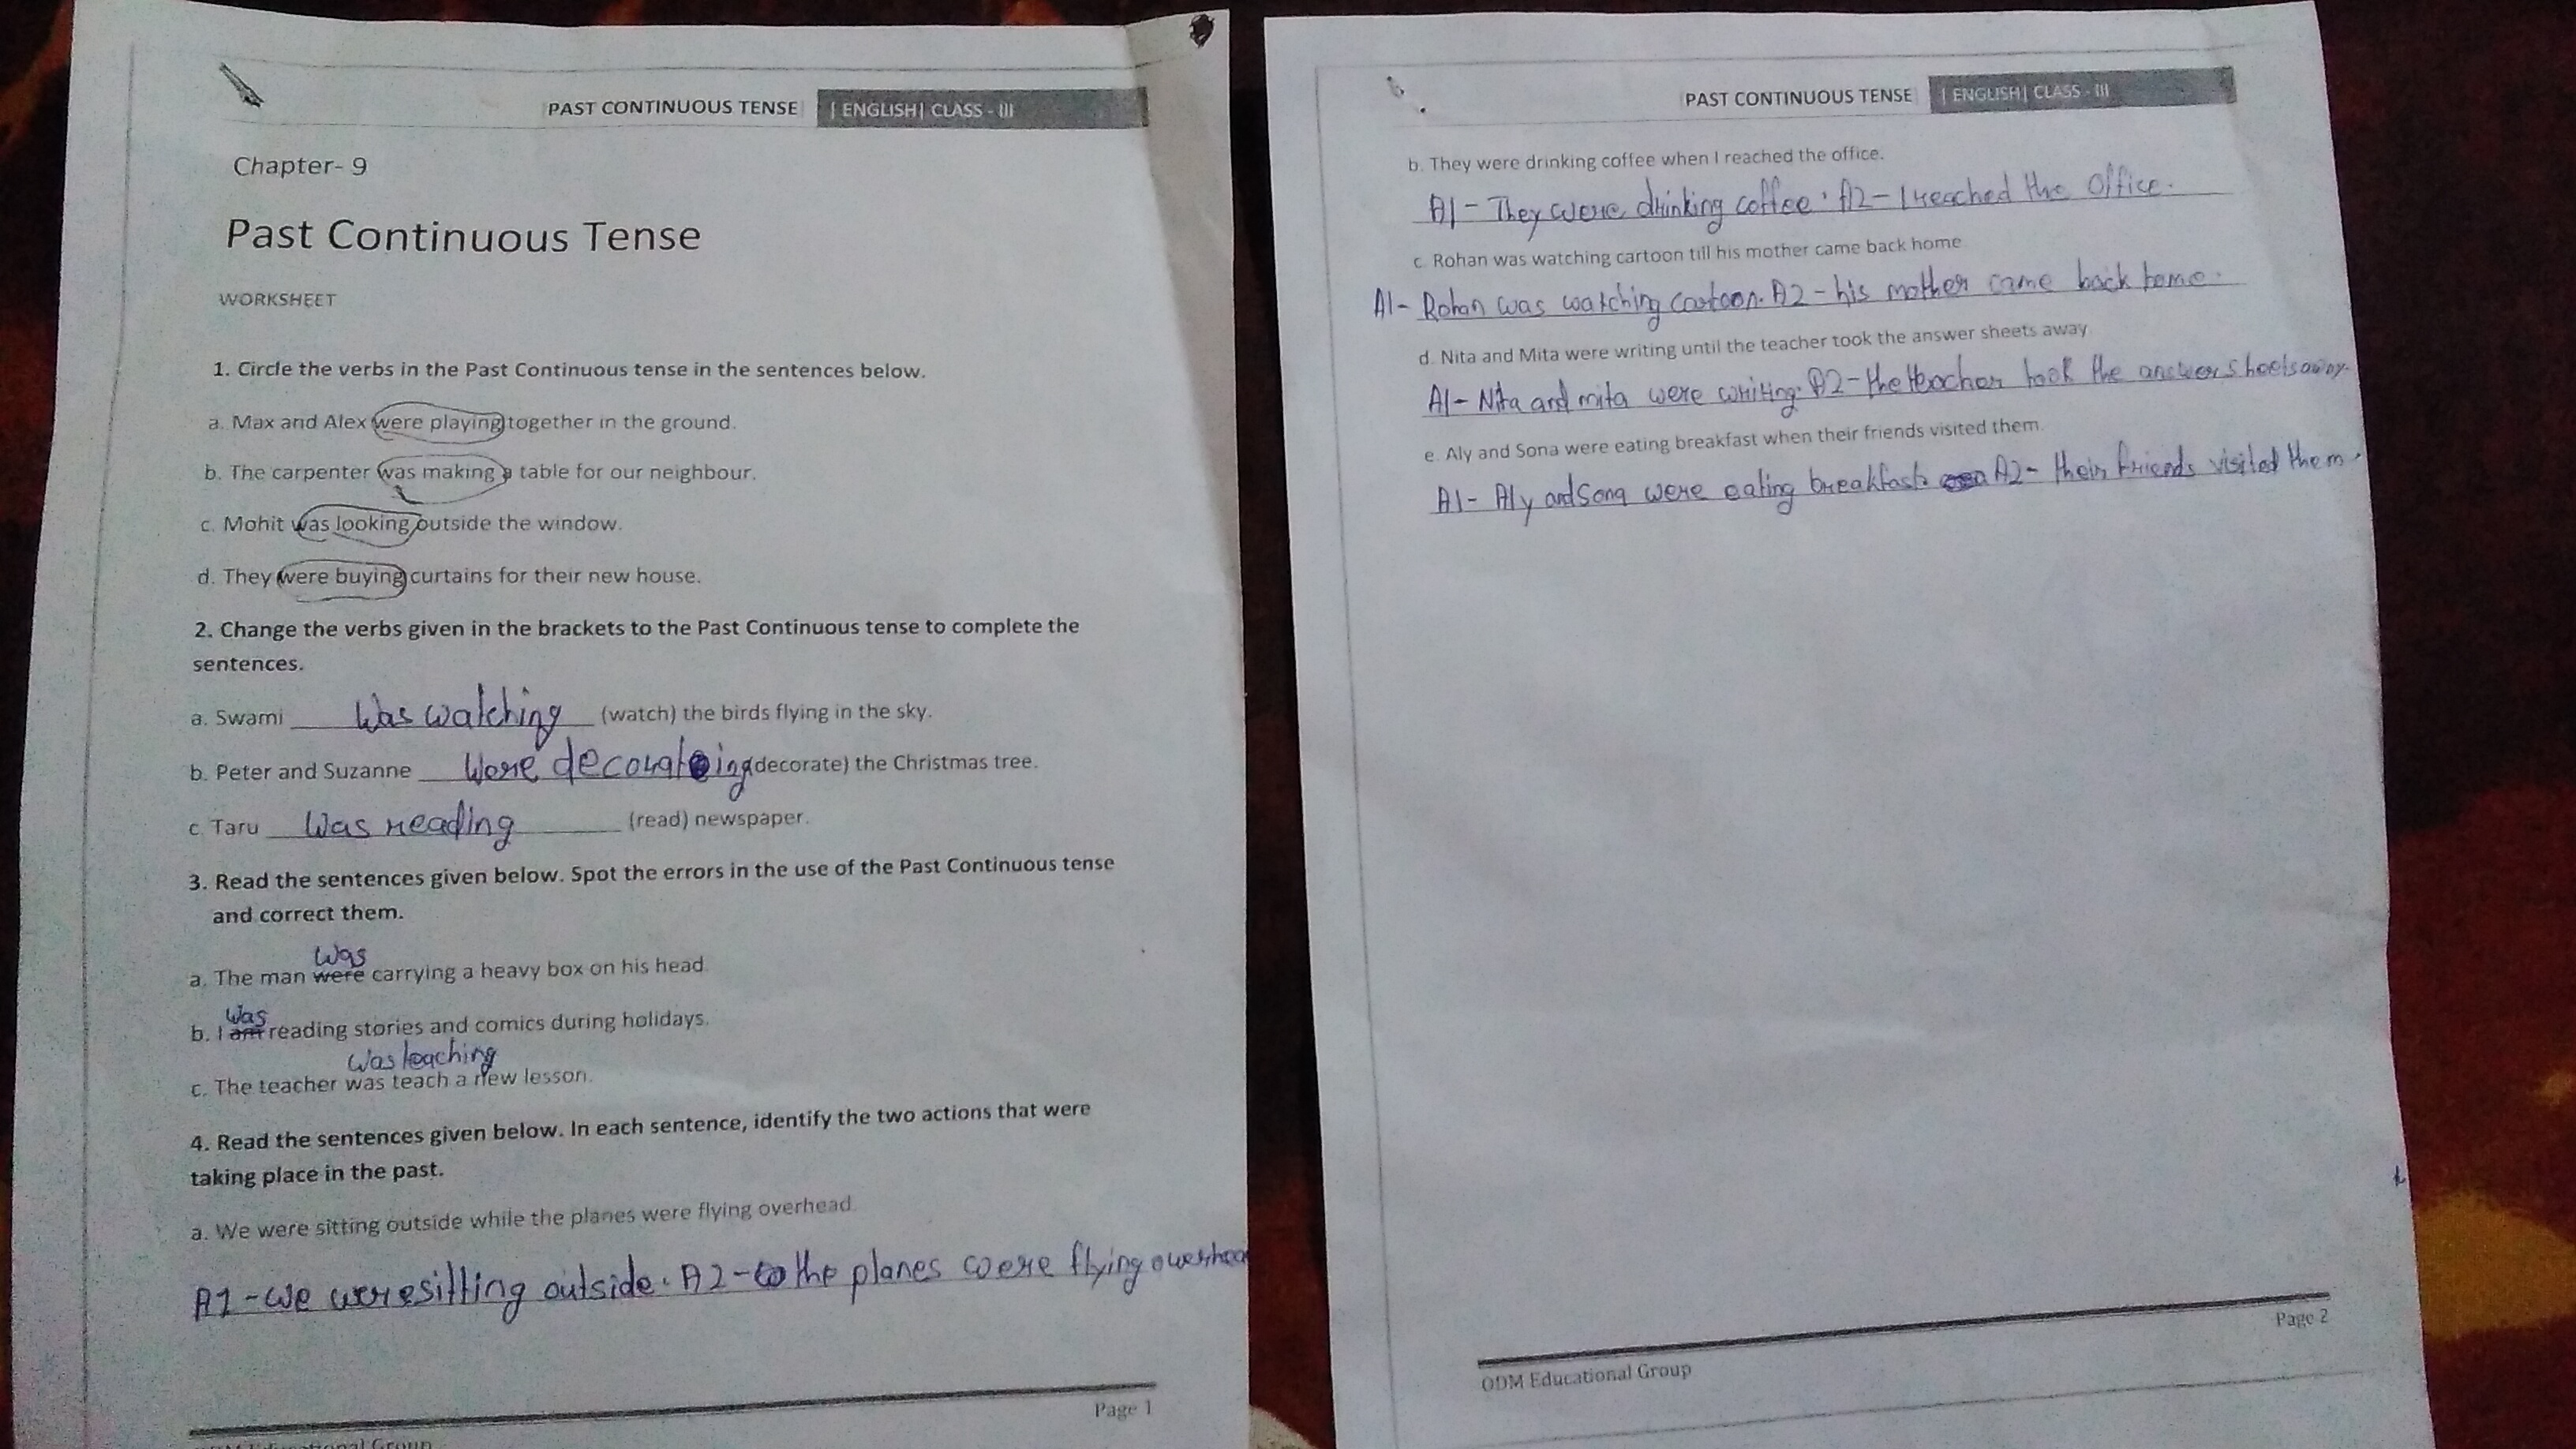 PAST CONTINUOUS TENSE | ENGLISH| CLASS - III
Chapter- 9
Past Continuous Tense
WORKSHEET
1. Circle the verbs in the Past Continuous tense in the sentences below.
a. Max and Alex were playing together in the ground.
b. The carpenter was making a table for our neighbour.
c. Mohit was looking outside the window.
d. They were buying curtains for their new house.
2. Change the verbs given in the brackets to the Past Continuous tense to complete the
sentences.
a. Swami was watching (watch) the birds flying in the sky.
b. Peter and Suzanne were decorating (decorate) the Christmas tree.
c. Taru was reading (read) newspaper.
3. Read the sentences given below. Spot the errors in the use of the Past Continuous tense
and correct them.
was
a. The man were carrying a heavy box on his head.
was
b. I am reading stories and comics during holidays.
was teaching
c. The teacher was teach a new lesson.
4. Read the sentences given below. In each sentence, identify the two actions that were
taking place in the past.
a. We were sitting outside while the planes were flying overhead.
A1 - We were sitting outside. A2 - the planes were flying overhea
Page 1
PAST CONTINUOUS TENSE | ENGLISH| CLASS - III
b. They were drinking coffee when I reached the office.
A1 - They were drinking coffee. A2 - I reached the office.
c. Rohan was watching cartoon till his mother came back home
A1 - Rohan was watching cartoon. A2 - his mother came back home.
d. Nita and Mita were writing until the teacher took the answer sheets away
A1 - Nita and mita were writing. A2 - the teacher took the answer sheets away.
e. Aly and Sona were eating breakfast when their friends visited them.
A1 - Aly and Sona were eating breakfast. A2 - their friends visited them.
Page 2
ODM Educational Group